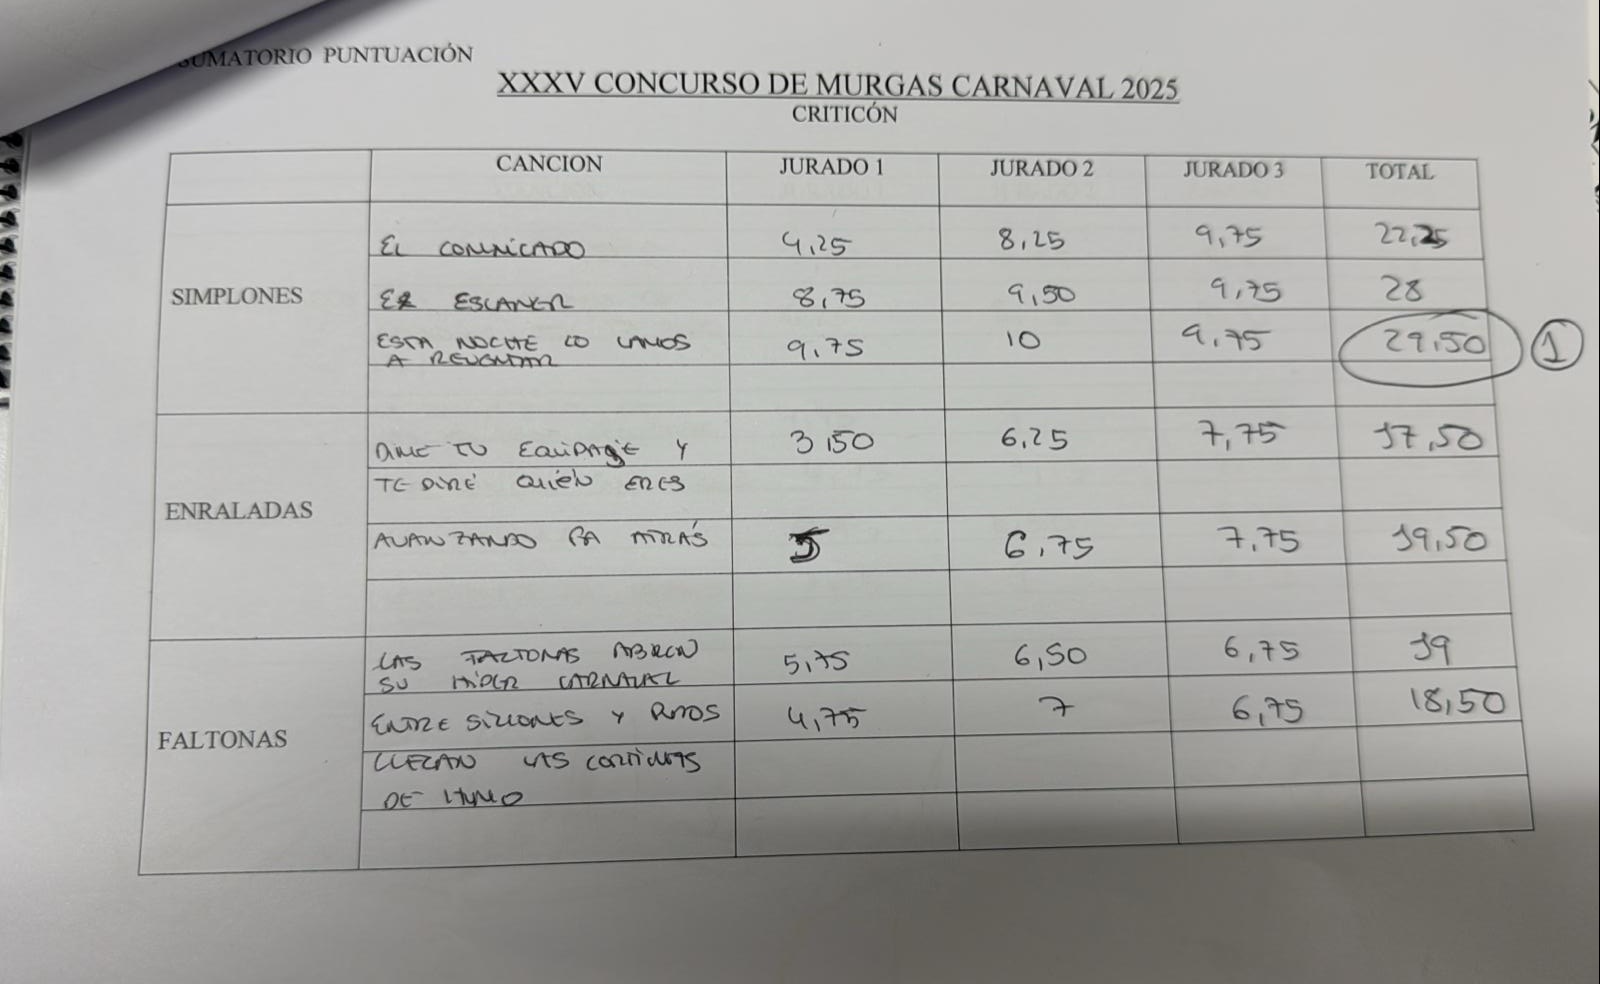 SUMATORIO PUNTUACIÓN
XXXV CONCURSO DE MURGAS CARNAVAL 2025
CRITICÓN
CANCION JURADO 1 JURADO 2 JURADO 3 TOTAL
SIMPLONES
EL COMUNICADO 4,25 8,25 9,75 22,25
EL ESCANER 8,75 9,50 9,75 28
ESTA NOCHE LO VAMOS 9,75 10 9,75 29,50 1
A REVENTAR
ENRALADAS
DIME TU EQUIPAJE Y 3,50 6,25 7,75 17,50
TE DIRÉ QUIÉN ERES
AVANZANDO PA ATRÁS 5 6,75 7,75 19,50
FALTONAS
LAS FALTONAS ABREN 5,75 6,50 6,75 19
SU HIPER CARNAVAL
ENTRE SILLONES Y 4,75 7 6,75 18,50
LLEGAN LAS CORTINAS
DE HUMO